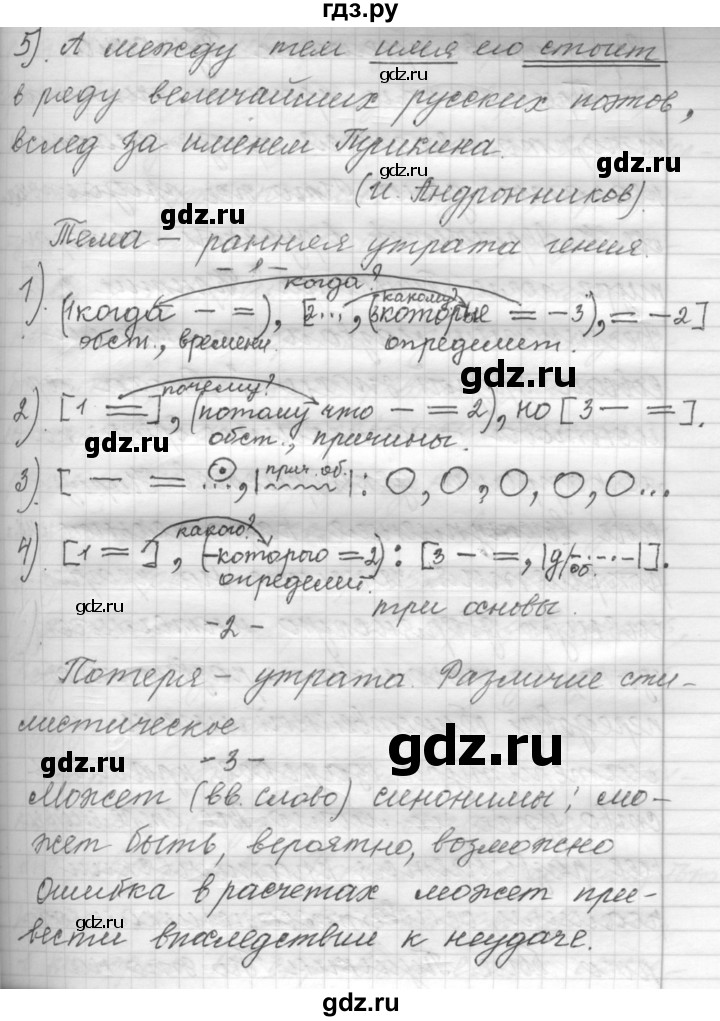 гдз.ру
5). А между тем имя его стоит
gdz.ru gdz.ru
в ряду величайших русских поэтов,
вслед за именем Пушкина.
gdz.ru
(И. Андронников).
gdz.ru
Тема – ранняя утрата гения.
- 1 -
когда? какому?
1). (1когда – =), [2..., (3которые = – 3), = – 2]
обст., времени. определит.
gdz.ru
почему?
2). [1 =], (потому что – = 2), но [3 – =].
gdz.ru обст., причины.
прич. об.
3). [ – = ..., | |: О, О, О, О, О...
какого?
4). [1 = ], (–которого = 2): [3 – =, |д/об.|].
определит.
gdz.ru три основы.
- 2 -
Потеря – утрата. Различие сти-
листическое
gdz.ru
- 3 -
gdz.ru
Может (вв. слово) синонимы; мо-
жет быть, вероятно, возможно
gdz.ru
Ошибка в расчетах может при-
вести впоследствии к неудаче.
gdz.ru
gdz.ru